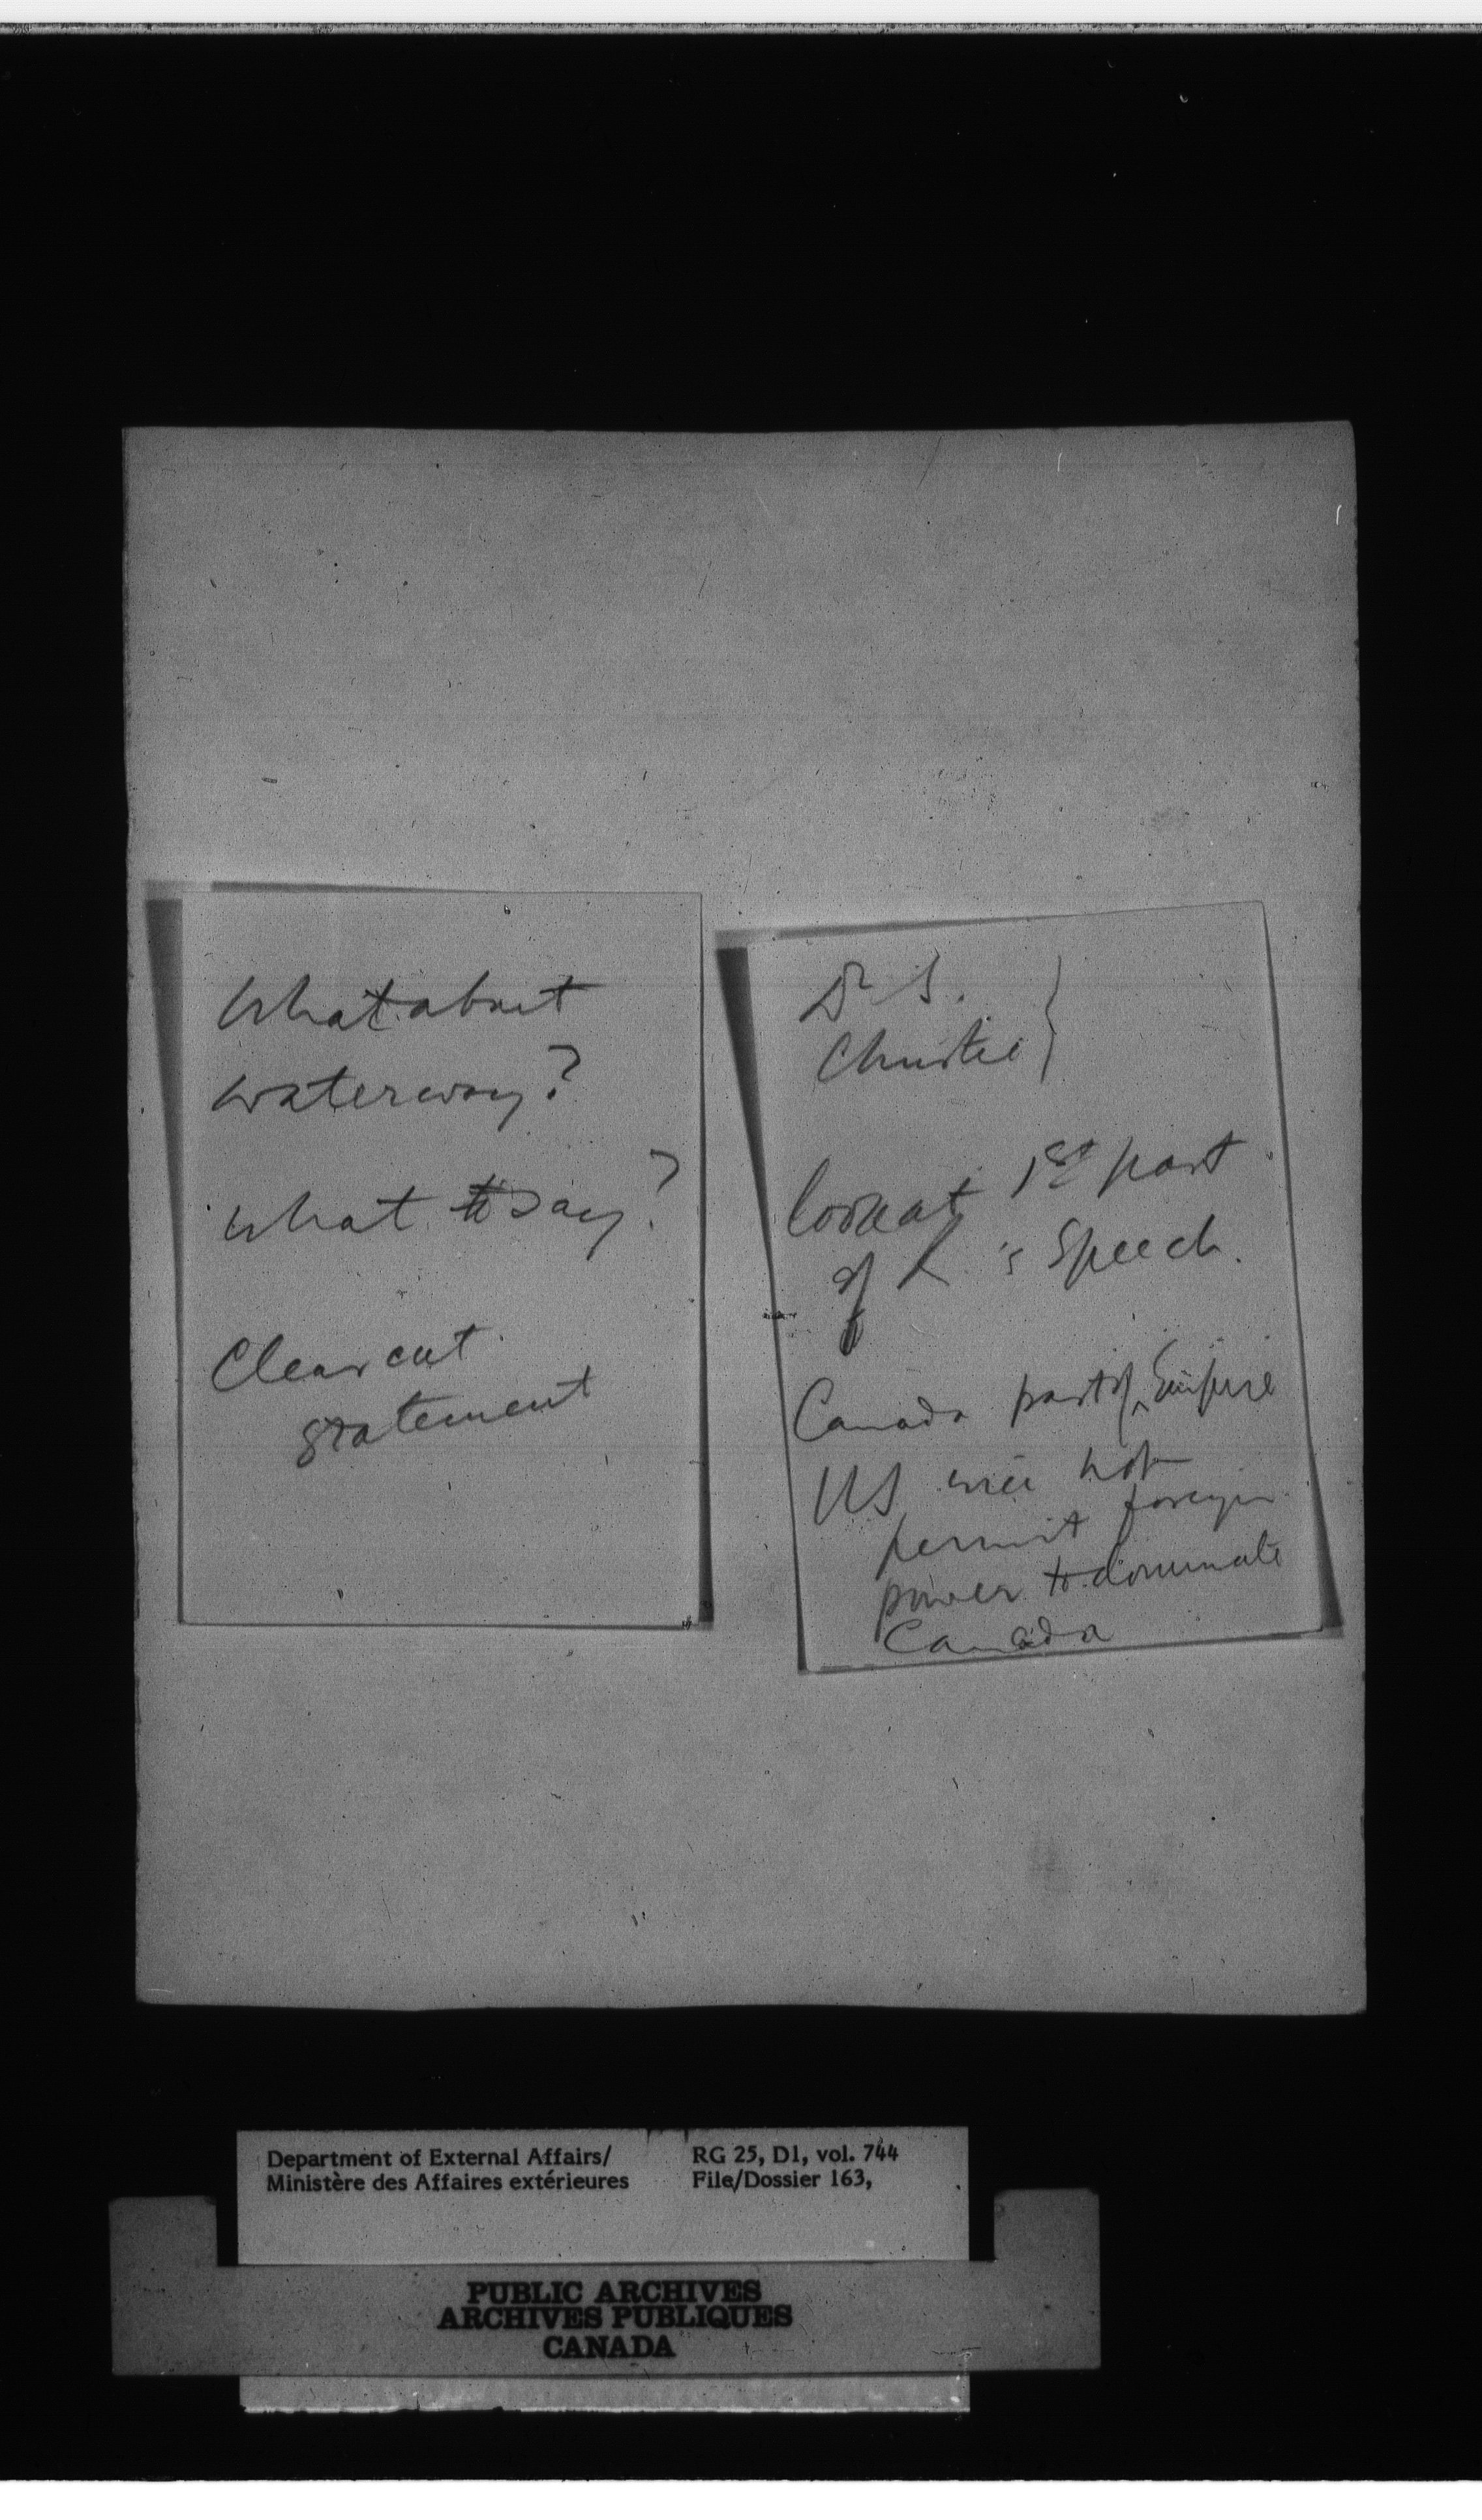 What about
waterway?
what to say?
Clear cut
statement
Dr S.
Christie }
look at 1st part
of R's Speech.
Canada part of Empire
US will not
permit foreign
power to dominate
Canada
Department of External Affairs/
Ministère des Affaires extérieures
RG 25, D1, vol. 744
File/Dossier 163,
PUBLIC ARCHIVES
ARCHIVES PUBLIQUES
CANADA